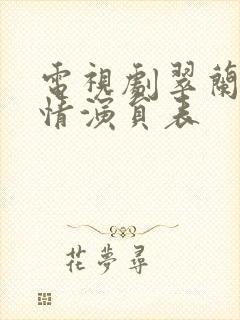 電視劇翠蘭
情演員表
花夢尋